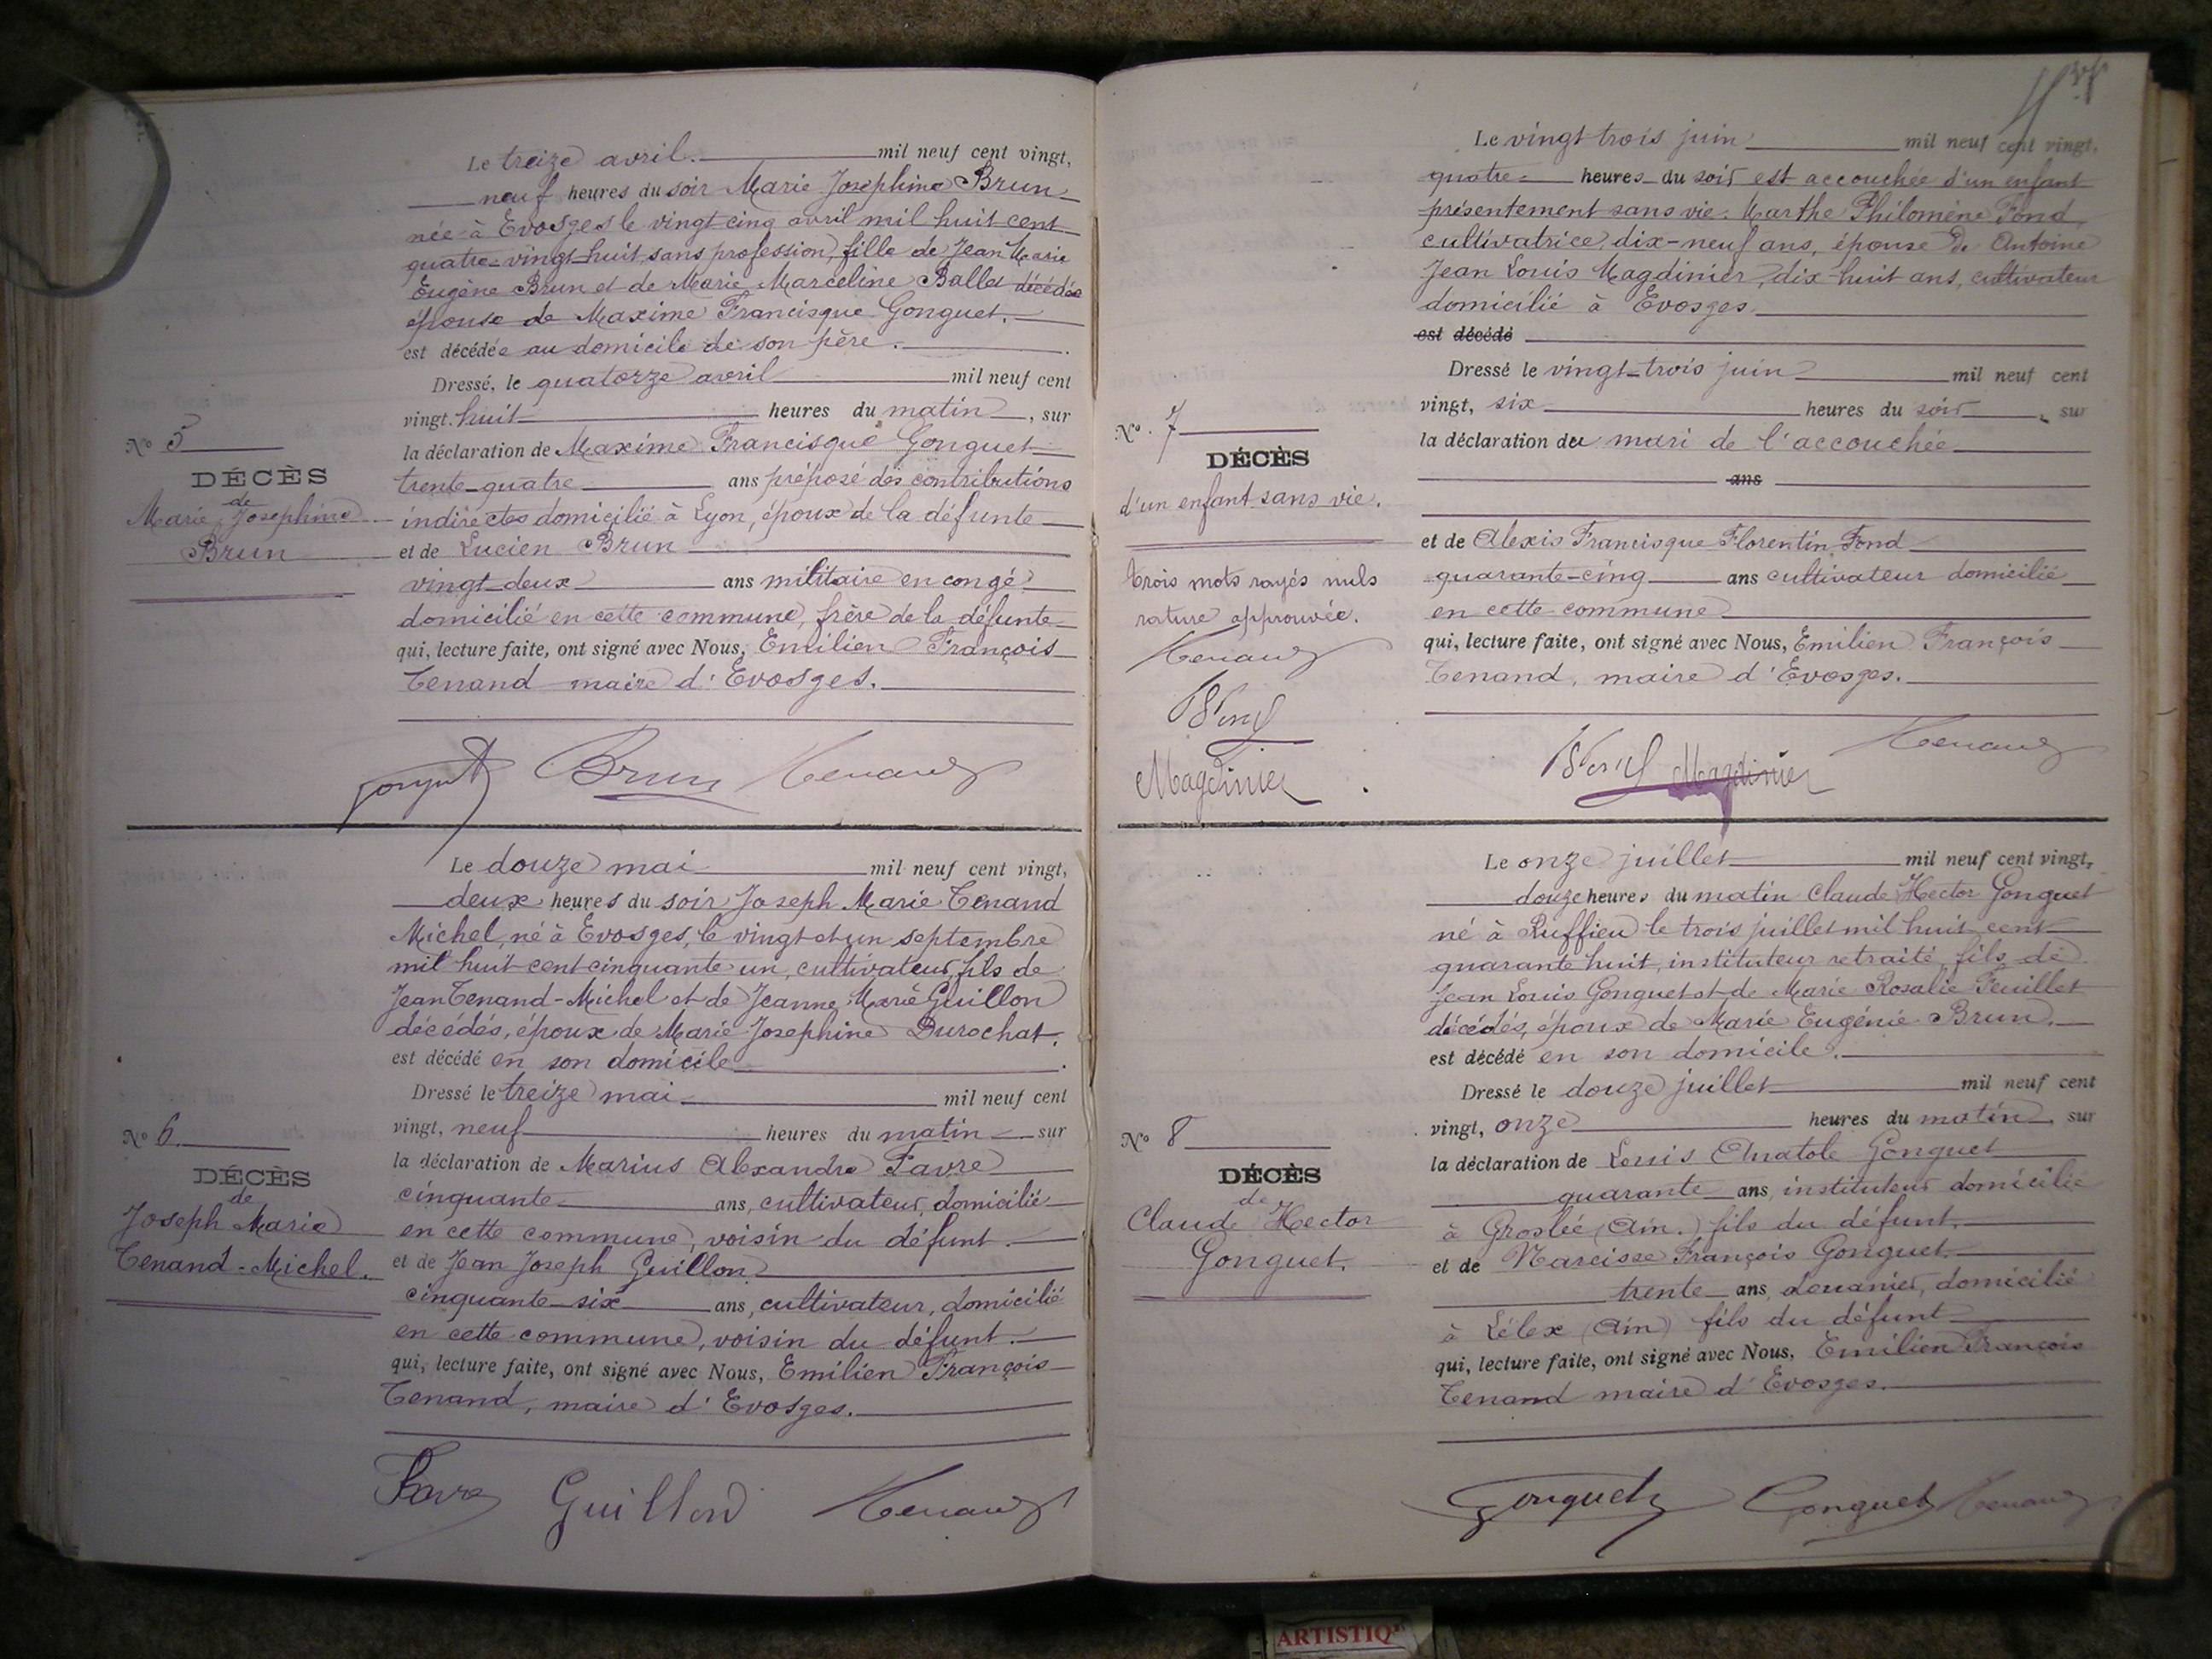 Le treize avril. mil neuf cent vingt,
neuf heures du soir Marie Joséphine Brun
née à Evosges le vingt cinq avril mil huit cent
quatre-vingt-huit, sans profession, fille de Jean Marie
Eugène Brun et de Marie Marceline Ballet décédée
épouse de Maxime Francisque Gonguet.
est décédée au domicile de son père.
Dressé, le quatorze avril mil neuf cent
vingt. huit heures du matin, sur
la déclaration de Maxime Francisque Gonguet
trente-quatre ans préposé des contributions
indirectes domicilié à Lyon, époux de la défunte
et de Lucien Brun
vingt-deux ans militaire en congé
domicilié en cette commune, frère de la défunte
qui, lecture faite, ont signé avec Nous, Emilien François
Tenand maire d'Evosges.
Nº 5
DÉCÈS
de
Marie Josephine
Brun
Gonguet Brun Tenand
Le douze mai mil neuf cent vingt,
deux heures du soir Joseph Marie Tenand
Michel, né à Evosges, le vingt et un septembre
mil huit cent cinquante un, cultivateur, fils de
Jean Tenand-Michel et de Jeanne Marie Guillon
décédés, époux de Marie Josephine Durochat.
est décédé en son domicile.
Dressé le treize mai mil neuf cent
vingt, neuf heures du matin sur
la déclaration de Marius Alexandre Favre
cinquante ans, cultivateur, domicilié
en cette commune, voisin du défunt.
et de Jean Joseph Guillon
cinquante-six ans, cultivateur, domicilié
en cette commune, voisin du défunt.
qui, lecture faite, ont signé avec Nous, Emilien François
Tenand, maire d'Evosges.
Nº 6
DÉCÈS
de
Joseph Marie
Tenand-Michel.
Favre Guillon Tenand
Le vingt trois juin mil neuf cent vingt,
quatre heures du soir est accouchée d'un enfant
présentement sans vie: Marthe Philomène Fond,
cultivatrice, dix-neuf ans, épouse de Antoine
Jean Louis Magdinier, dix-huit ans, cultivateur
domicilié à Evosges.
est décédé
Dressé le vingt-trois juin mil neuf cent
vingt, six heures du soir, sur
la déclaration du mari de l'accouchée
ans
et de Alexis Francisque Florentin Fond
quarante-cinq ans cultivateur domicilié
en cette commune
qui, lecture faite, ont signé avec Nous, Emilien François
Tenand, maire d'Evosges.
Nº. 7
DÉCÈS
d'un enfant sans vie.
trois mots rayés nuls
rature approuvée.
Tenand
Fond
Magdinier
Fond Magdinier Tenand
Le onze juillet mil neuf cent vingt,
douze heures du matin Claude Hector Gonguet
né à Ruffieu le trois juillet mil huit cent
quarante huit, instituteur retraité, fils de
Jean Louis Gonguet et de Marie Rosalie Feuillet
décédés, époux de Marie Eugénie Brun.
est décédé en son domicile.
Dressé le douze juillet mil neuf cent
vingt, onze heures du matin sur
la déclaration de Louis Anatole Gonguet
quarante ans, instituteur domicilié
à Groslée (Ain.) fils du défunt.
et de Narcisse François Gonguet.
trente ans, douanier, domicilié
à Lélex (Ain) fils du défunt
qui, lecture faite, ont signé avec Nous, Emilien François
Tenand maire d'Evosges.
Nº 8
DÉCÈS
de
Claude Hector
Gonguet.
Gonguet Gonguet Tenand
ARTISTIQ